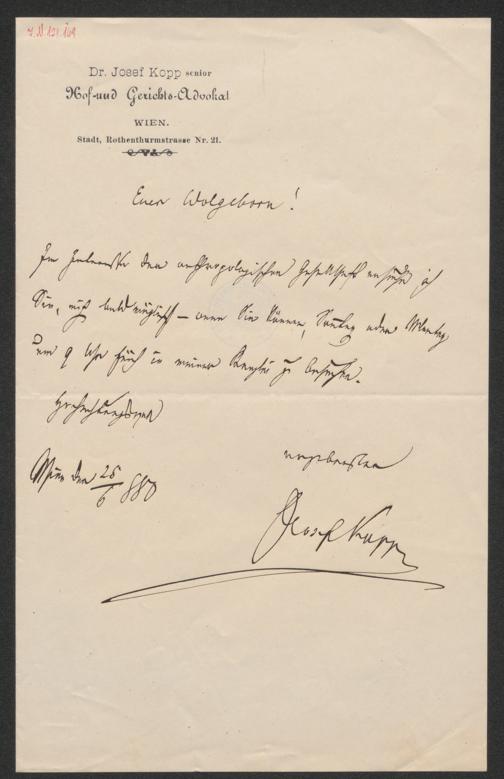 I.N. 121.169
Dr. Josef Kopp senior
Hof- und Gerichts-Advokat
WIEN.
Stadt, Rothenthurmstrasse Nr. 21.
Euer Wolgeborn!
Im Interesse der anthropologischen Gesellschaft ersuche ich
Sie, mich baldmöglichst – wenn Sie können, Sonntag oder Montag
um 9 Uhr früh in meiner Kanzlei zu besuchen.
Hochachtungsvoll
ergebenster
Wien den 26/6 880
Josef Kopp